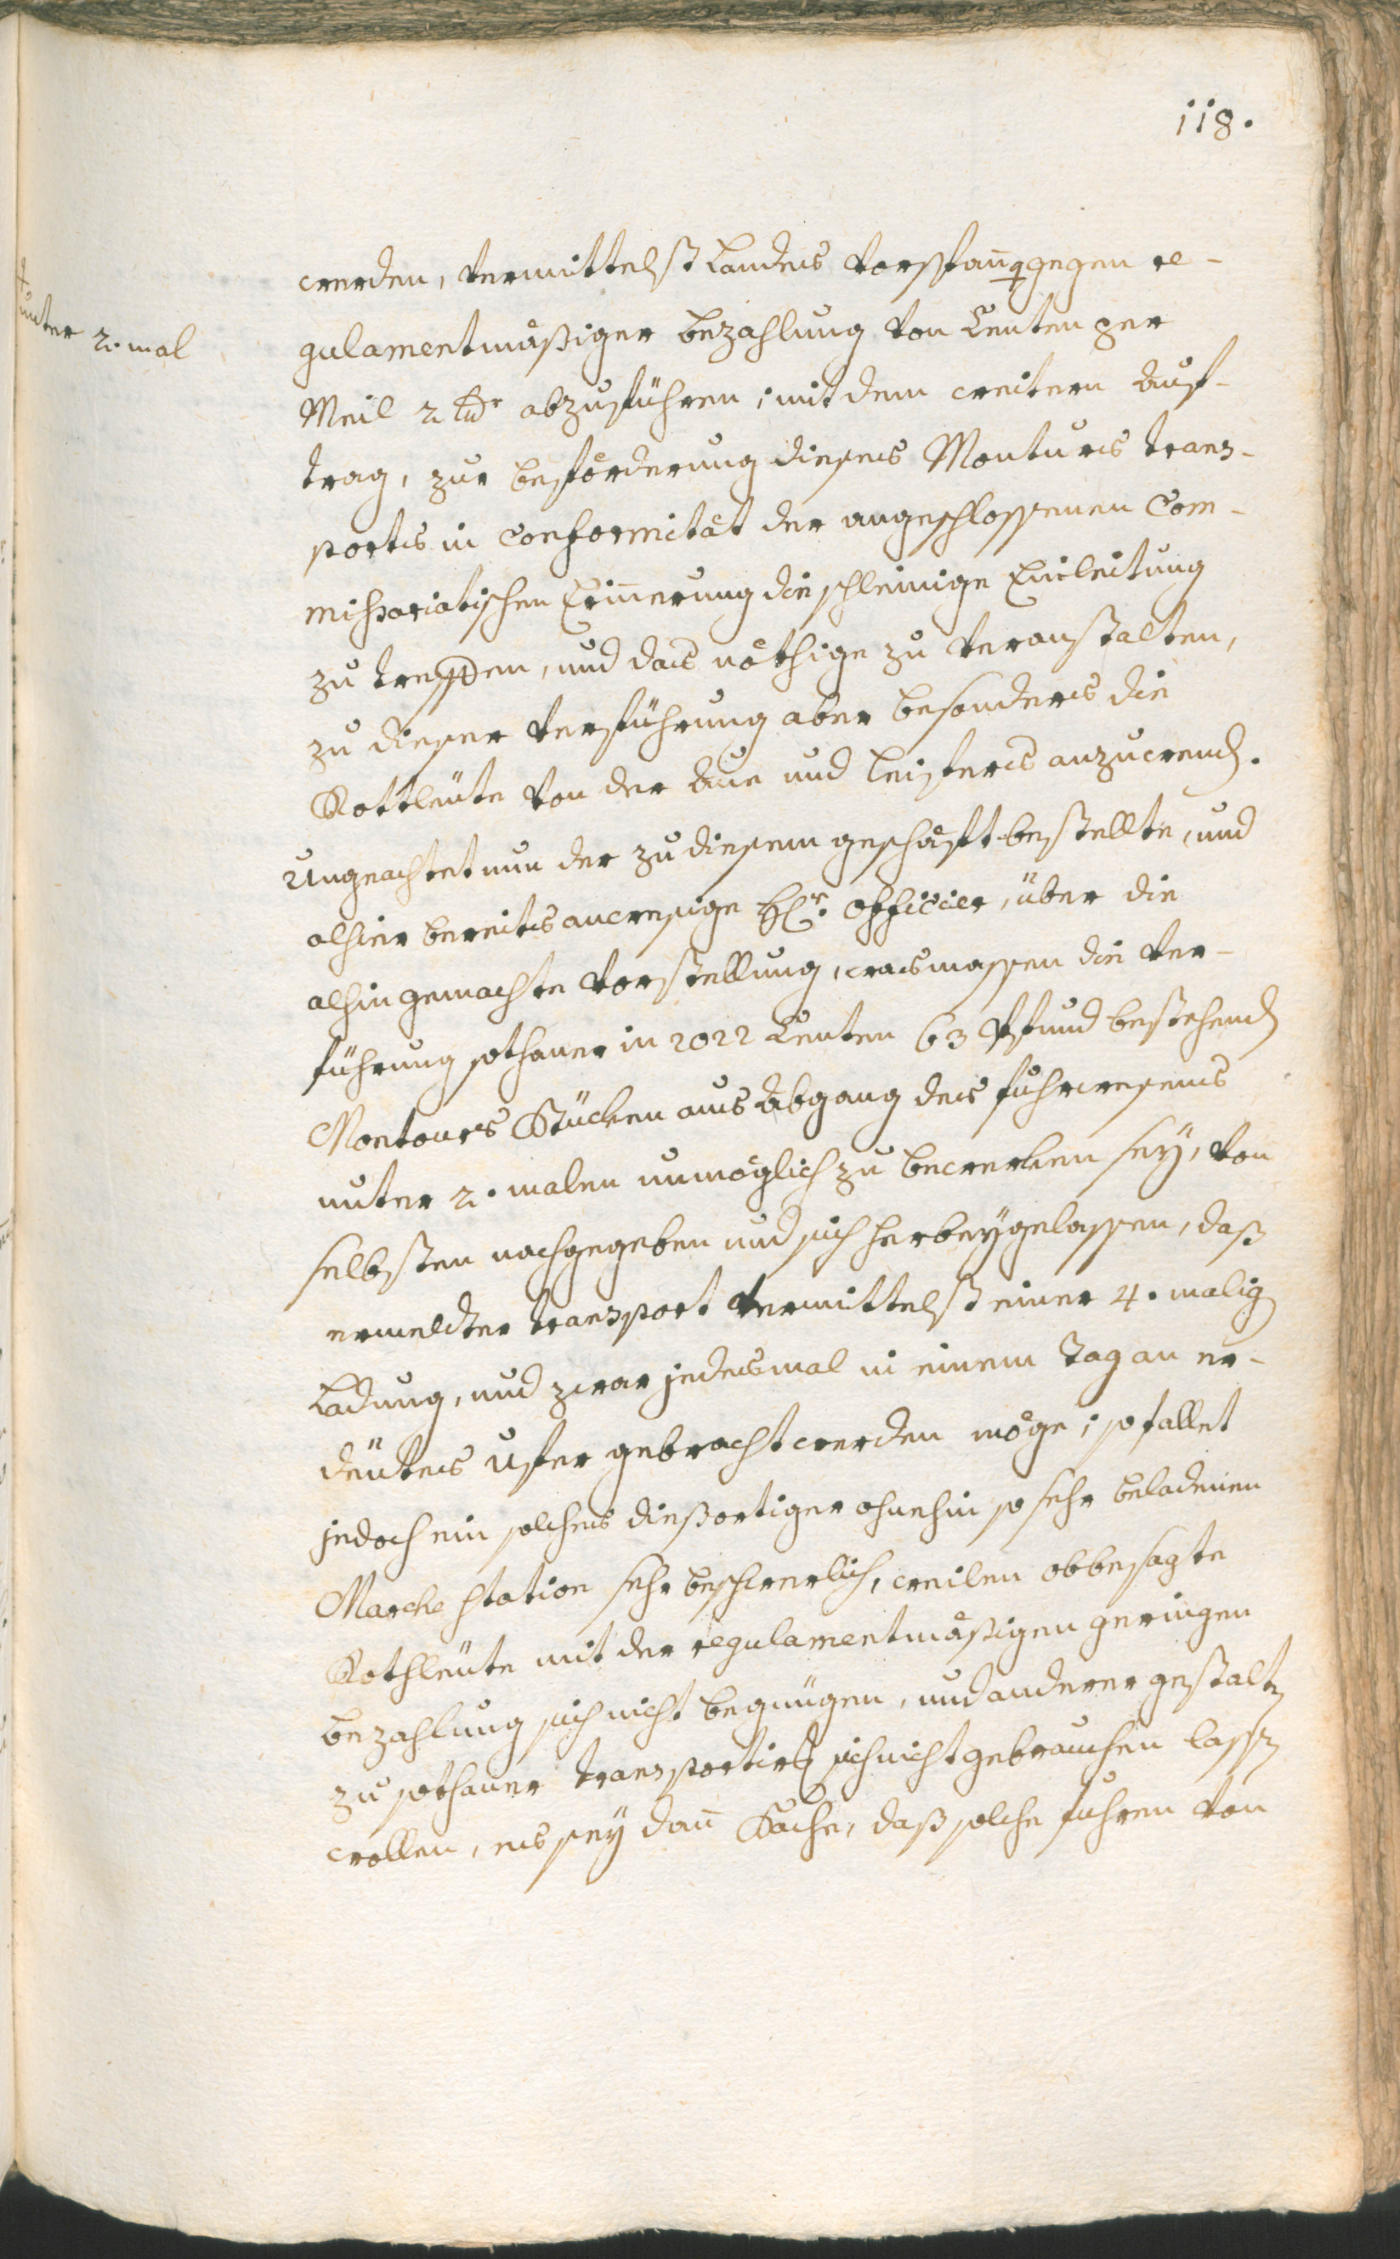 118.
unter 2. mal
werden, vermittelst Landes vorspann gegen re-
gulamentmäßiger bezahlung von Centen per
Meil 2 xr abzuführen; mit dem weitern Auf-
trag, zur beförderung dieses Monturs trans-
ports in Conformität der angeschlossenen Com-
missariatischen Erinnerung die schleinige Einleitung
zu treffen, und das nöthige zu veranstalten,
zu dieser verführung aber besonders die
Rottleüte von der Aue und Leisters anzuwend.
Ungeachtet nun der zu diesem geschäft bestellte, und
alhier bereits anwesige H. Officier, über die
alhin gemachte vorstellung, wasmassen die ver-
führung sothaner in 2022 Centen 63 Pfund bestehend
Montours Stücken aus Abgang des fuhrwesens
unter 2. malen unmöglich zu bewerken seÿ, von
selbsten nachgegeben und sich herbeÿgelassen, daß
ermelter transport vermittelst einer 4. malig
Ladung, und zwar jedesmal in einem Tag an er-
deütes Ufer gebracht werden möge; so fallet
jedoch ein solches dießortiger ohnehin so sehr beladenen
Marche station sehr beschwerlich, weilen obbesagte
Rothleüte mit der regulamentmäßigen geringen
bezahlung sich nicht begnügen, und anderer gestalt
zu sothaner transportir sich nicht gebrauchen lassen
wollen, es seÿ dann Sache, daß solche fuhren von